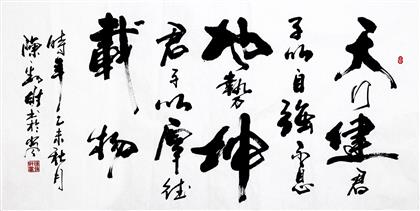 天行健君
子以自強不息
地勢坤
君子以厚德
載物
時年乙未秋月